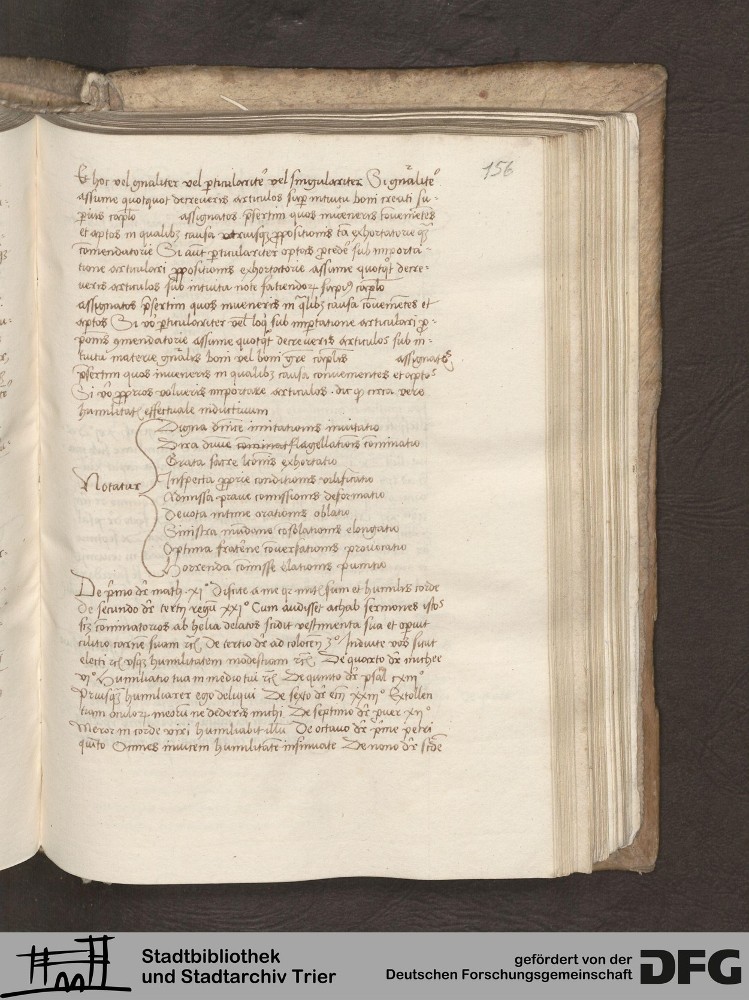 156
Et hoc vel gn̄aliter vel p̄ticularite᷒ vel singulariter Si gn̄alite᷒
assume quotquot decreveris articulos suꝑ intuitu boni creati su-
ꝑius cap̄lo assignatos p̄sertim quos inveneris cōvenie̅tes
et aptos in qualibꝫ causa utriusqꝫ ꝓpositionis ta̅ exhortatorie qꝫ
comendatorie Si aūt ꝑticulariter optas ꝓcede᷒ sub importa-
tione articulari ꝓpositionis exhortatorie assume quotqͦt decre-
veris articulos sub intuitu note fatiendoꝝ sup̄iꝰ cap̄lo
assignatos p̄sertim quos inveneris in q̄libꝫ causa cōvenientes et
aptos Si vͦo ꝑticulariter vel loq̄ sub imp̄tatione articulari ꝓ-
ponis ꝯmendatorie assume quotqͦt decreveris articulos sub in-
tuitu materie gn̄alis boni vel boni gn̄e cap̄lis assignatos
p̄sertim quos inveneris in qualibꝫ causa convenientes et aptos
Si vͦo ꝓprios volueris importare articulos . dic qͥ circa vere
humilitatꝭ effectuale inductivum
Notatur
Digna divīe imitationis invitatio
Dira divīe flagellationis cōminatio
Grata sacre lc̅onis exhortatio
Inspecta ꝓprie conditionis vilificatio
Admissa prave comissionis deformatio
Devota intime orationis oblatio
Sinistra mūdane cōsolationis elongatio
Optima frat̄ne cōversationis provocatio
Horrenda cōmisse elationis punitio
De pͥmo dr̄ math. xiͦ Discite a me qꝛ mitꝭ sum et humilis corde
De secundo dr̄ tertij regū xxiͦ Cum audisset achab sermones istos
sꝫ cōminatorios ab helia delatos scidit vestimenta sua et opuit
cilitio carnē suam rcꝭ De tertio dr̄ ad colocen̄ 3ͦ Induite vos sicut
electi rcꝭ usqꝫ humilitatem modestiam rcꝭ De quarto dr̄ michee
viͦ humiliatio tua in medio tui rcꝭ De quinto dr̄ psal cxiiiͦ
Priusqꝫ humiliarer ego deliqui De sexto dr̄ eccī xxiiiͦ Extollen
tiam oculoꝝ meoꝝ ne dederis michi De septimo dr̄ prover xijͦ
Meror in corde viri humiliabit illū De octavo dr̄ pͥme petri
quīto Omnes invicem humilitatē insinuate De nono dr̄ scd̄e
Stadtbibliothek
und Stadtarchiv Trier
gefördert von der
Deutschen Forschungsgemeinschaft
DFG